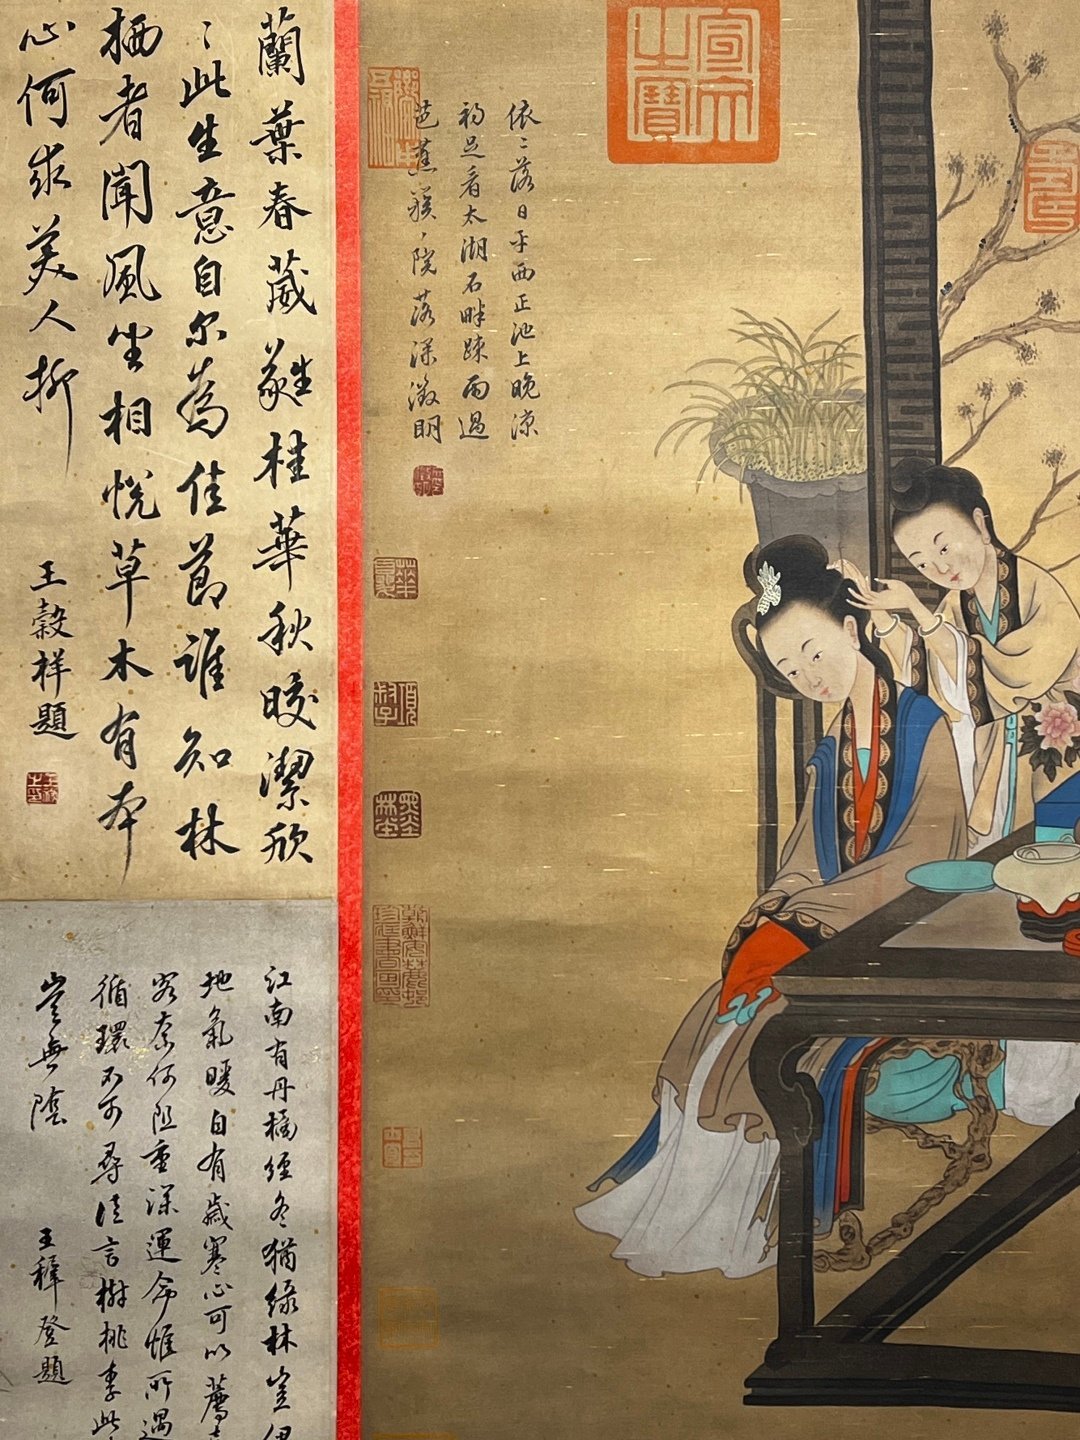 宣文之寶
依〻落日平西正池上晚涼
初足看太湖石畔疎雨過
芭蕉簇〻院落深徵明
蘭葉春葳蕤桂華秋皎潔欣
〻此生意自尔為佳節誰知林
栖者聞風坐相悅草木有本
心何求美人折
王穀祥題
江南有丹橘經冬猶綠林豈伊
地氣暖自有歲寒心可以薦
客奈何阻重深運命惟所遇
循環不可尋徒言樹桃李此
豈無陰
王穉登題